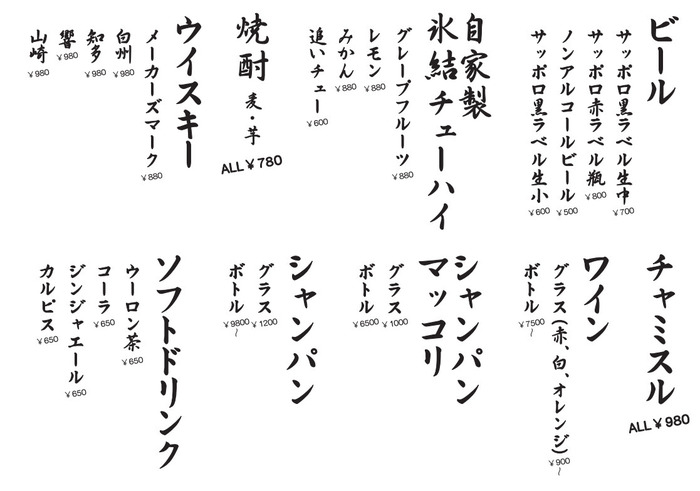 ビール
サッポロ黒ラベル生中
¥700
サッポロ赤ラベル瓶
¥800
ノンアルコールビール
¥500
サッポロ黒ラベル生小
¥600
自家製
氷結チューハイ
グレープフルーツ
¥880
レモン
¥880
みかん
¥880
追いチュー
¥600
焼酎 麦・芋
ALL¥780
ウイスキー
メーカーズマーク
¥880
白州
¥980
知多
¥980
響
¥980
山崎
¥980
チャミスル
ALL¥980
ワイン
グラス(赤、白、オレンジ)
¥900〜
ボトル
¥7500〜
シャンパン
マッコリ
グラス
¥1000
ボトル
¥6500
シャンパン
グラス
¥1200
ボトル
¥9800〜
ソフトドリンク
ウーロン茶
¥650
コーラ
¥650
ジンジャエール
¥650
カルピス
¥650